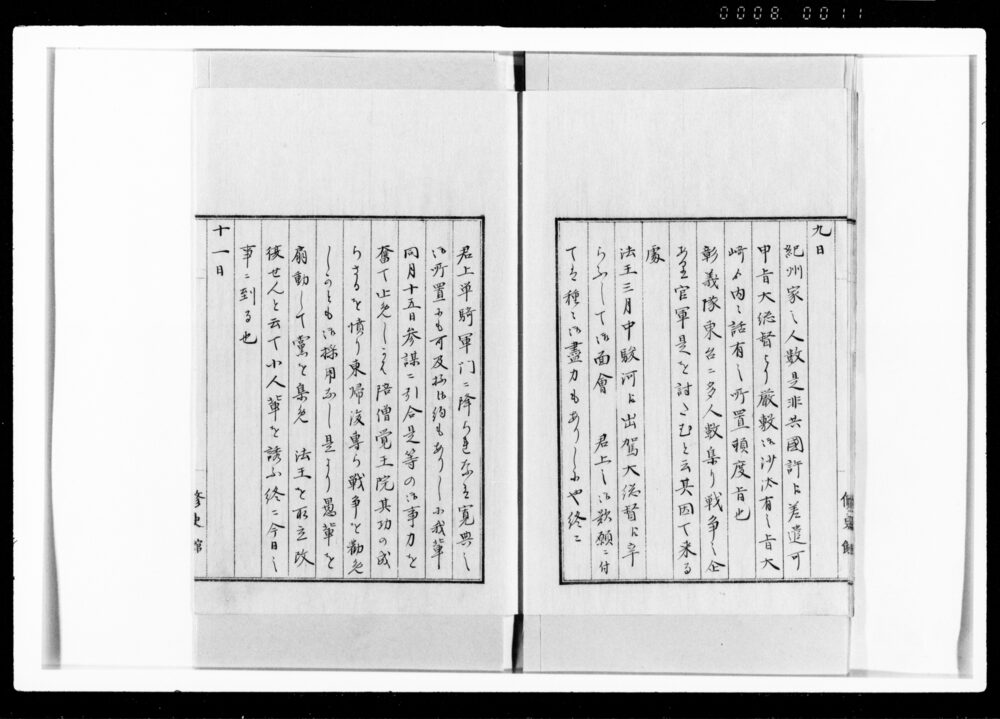 0008 0011
九日
紀州家之人数是非共國許ゟ差遣可
申旨大総督ゟ厳敷御沙汰有之旨大
﨑ゟ内々話有之所置頼度旨也
彰義隊東台ニ多人数集り戦争之企
あり官軍是を討たむと云其因て来る
處
法王三月中駿河ゟ出駕大総督ゟ
らふして御面會 君上之御歎願ニ付
ては種々御盡力もありしにや終ニ
君上単騎軍门ニ降られなは寛典之
御所置にも可及抔御約もありしに我輩
同月十五日参謀ニ引合是等の御事力を
奮て止免しかは陪僧覚王院其功の成
らさるを憤り東帰後専ら戦争を勧免
しかとも御採用なし是より愚輩を
扇動して黨を集免 法王を取立改
復せんと云て小人輩を誘ふ終ニ今日之
事ニ到る也
十一日
修史館
修史館